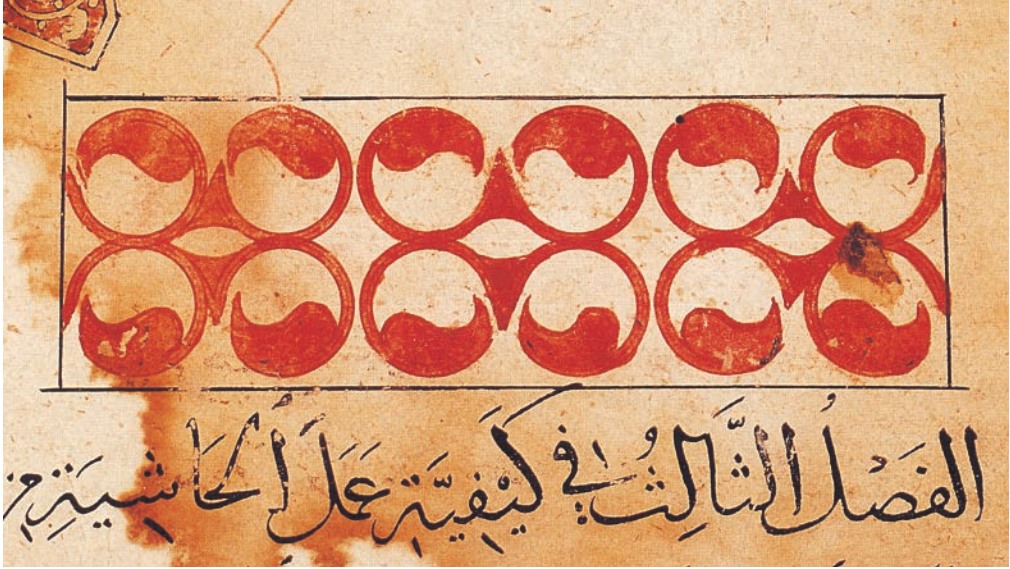 الفَصْلُ الثَّالِثُ في كَيْفِيَّةِ عَمَلِ الحَاشِيَةِ مِن